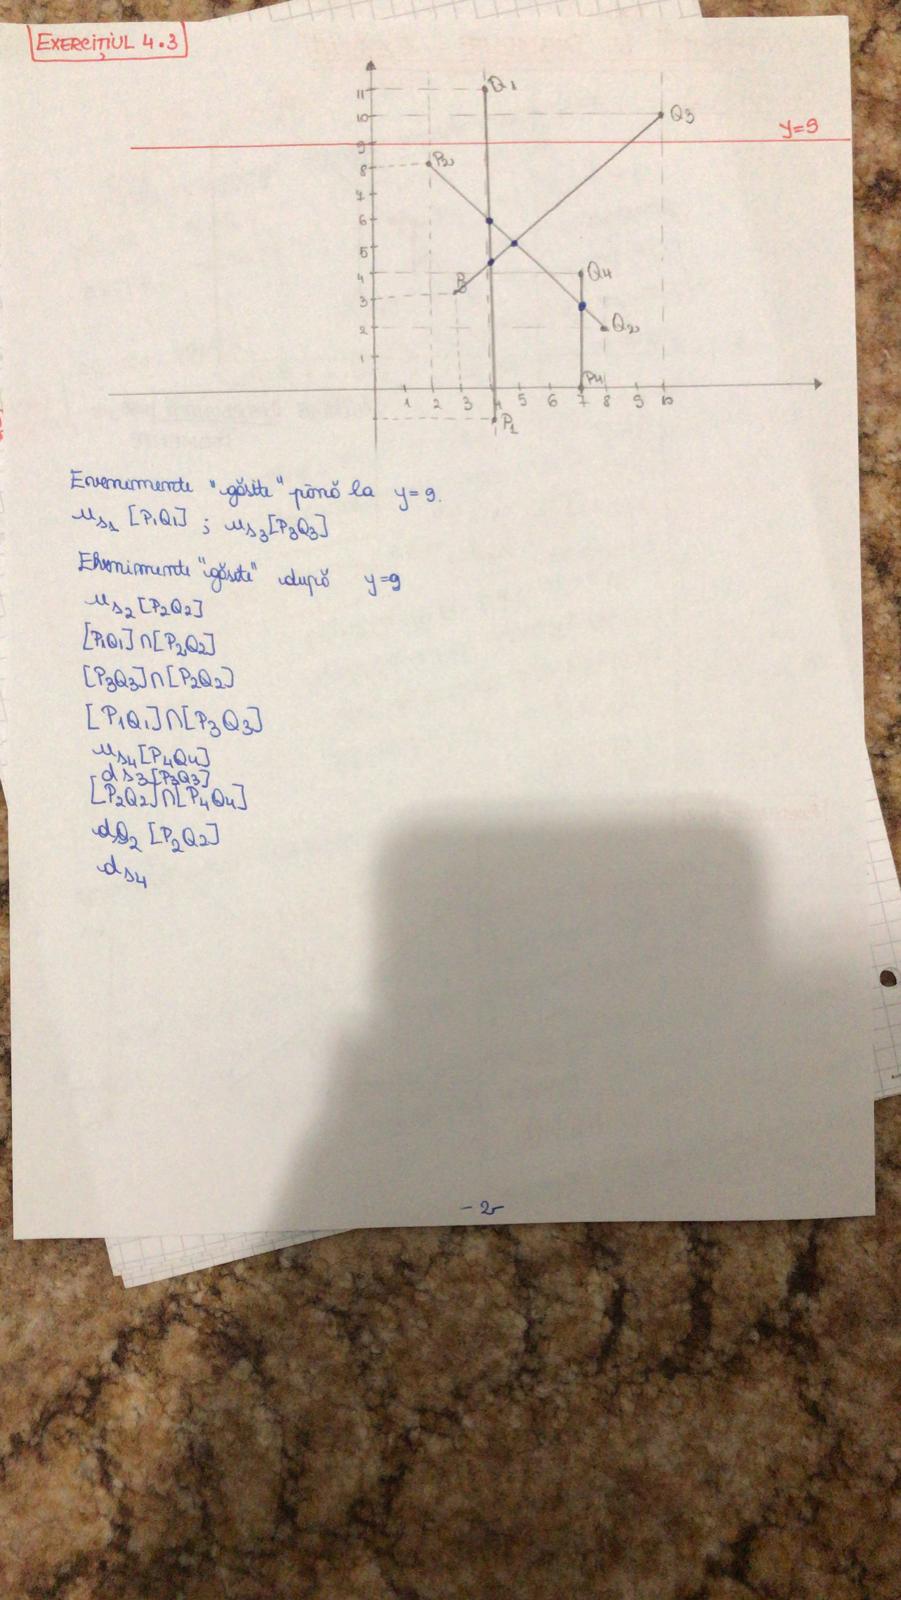 EXERCIȚIUL 4.3
11 Q1
10 Q3
y=9
9
8 P2
7
6
5
4 Q4
3 P3
2 Q2
1
P4
1 2 3 4 5 6 7 8 9 10
P1
Evenimente "găsite" până la y=9.
us1 [P1Q1] ; us3 [P3Q3]
Evenimente "găsite" după y=9
us2 [P2Q2]
[P1Q1]∩[P2Q2]
[P3Q3]∩[P2Q2]
[P1Q1]∩[P3Q3]
us4 [P4Q4]
ds3 [P3Q3]
[P2Q2]∩[P4Q4]
[P2Q2]
ds4
-2-